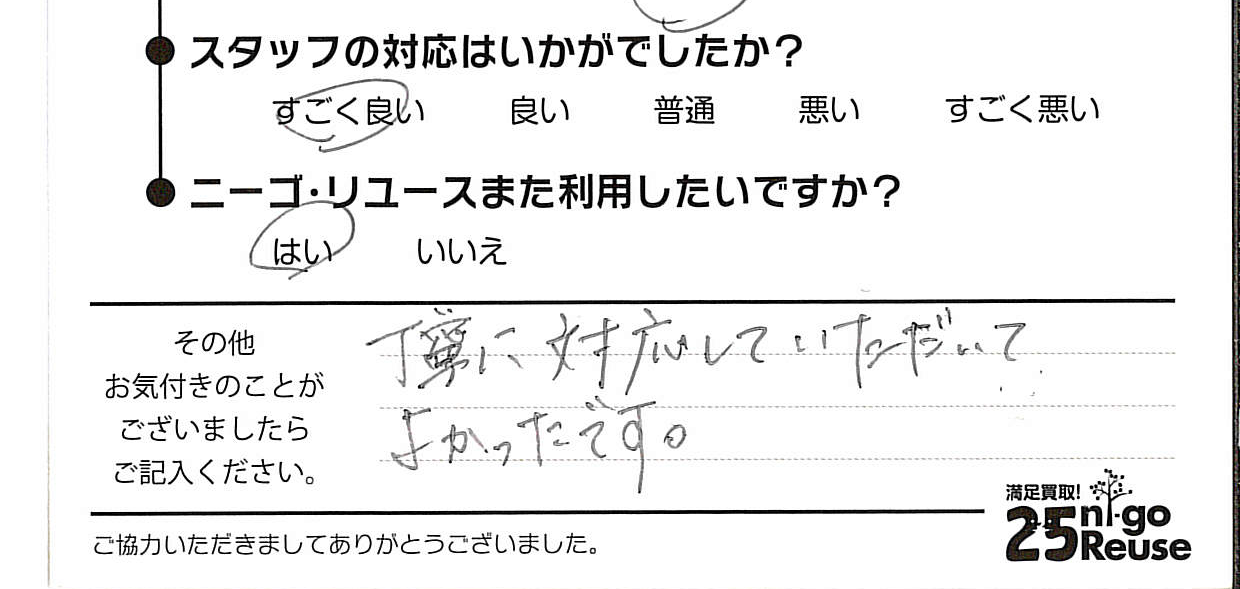 スタッフの対応はいかがでしたか？
すごく良い 良い 普通 悪い すごく悪い
ニーゴ・リユースまた利用したいですか？
はい いいえ
その他
お気付きのことが
ございましたら
ご記入ください。
丁寧に対応していただいて
よかったです。
満足買取!
25 ni-go
Reuse
ご協力いただきましてありがとうございました。